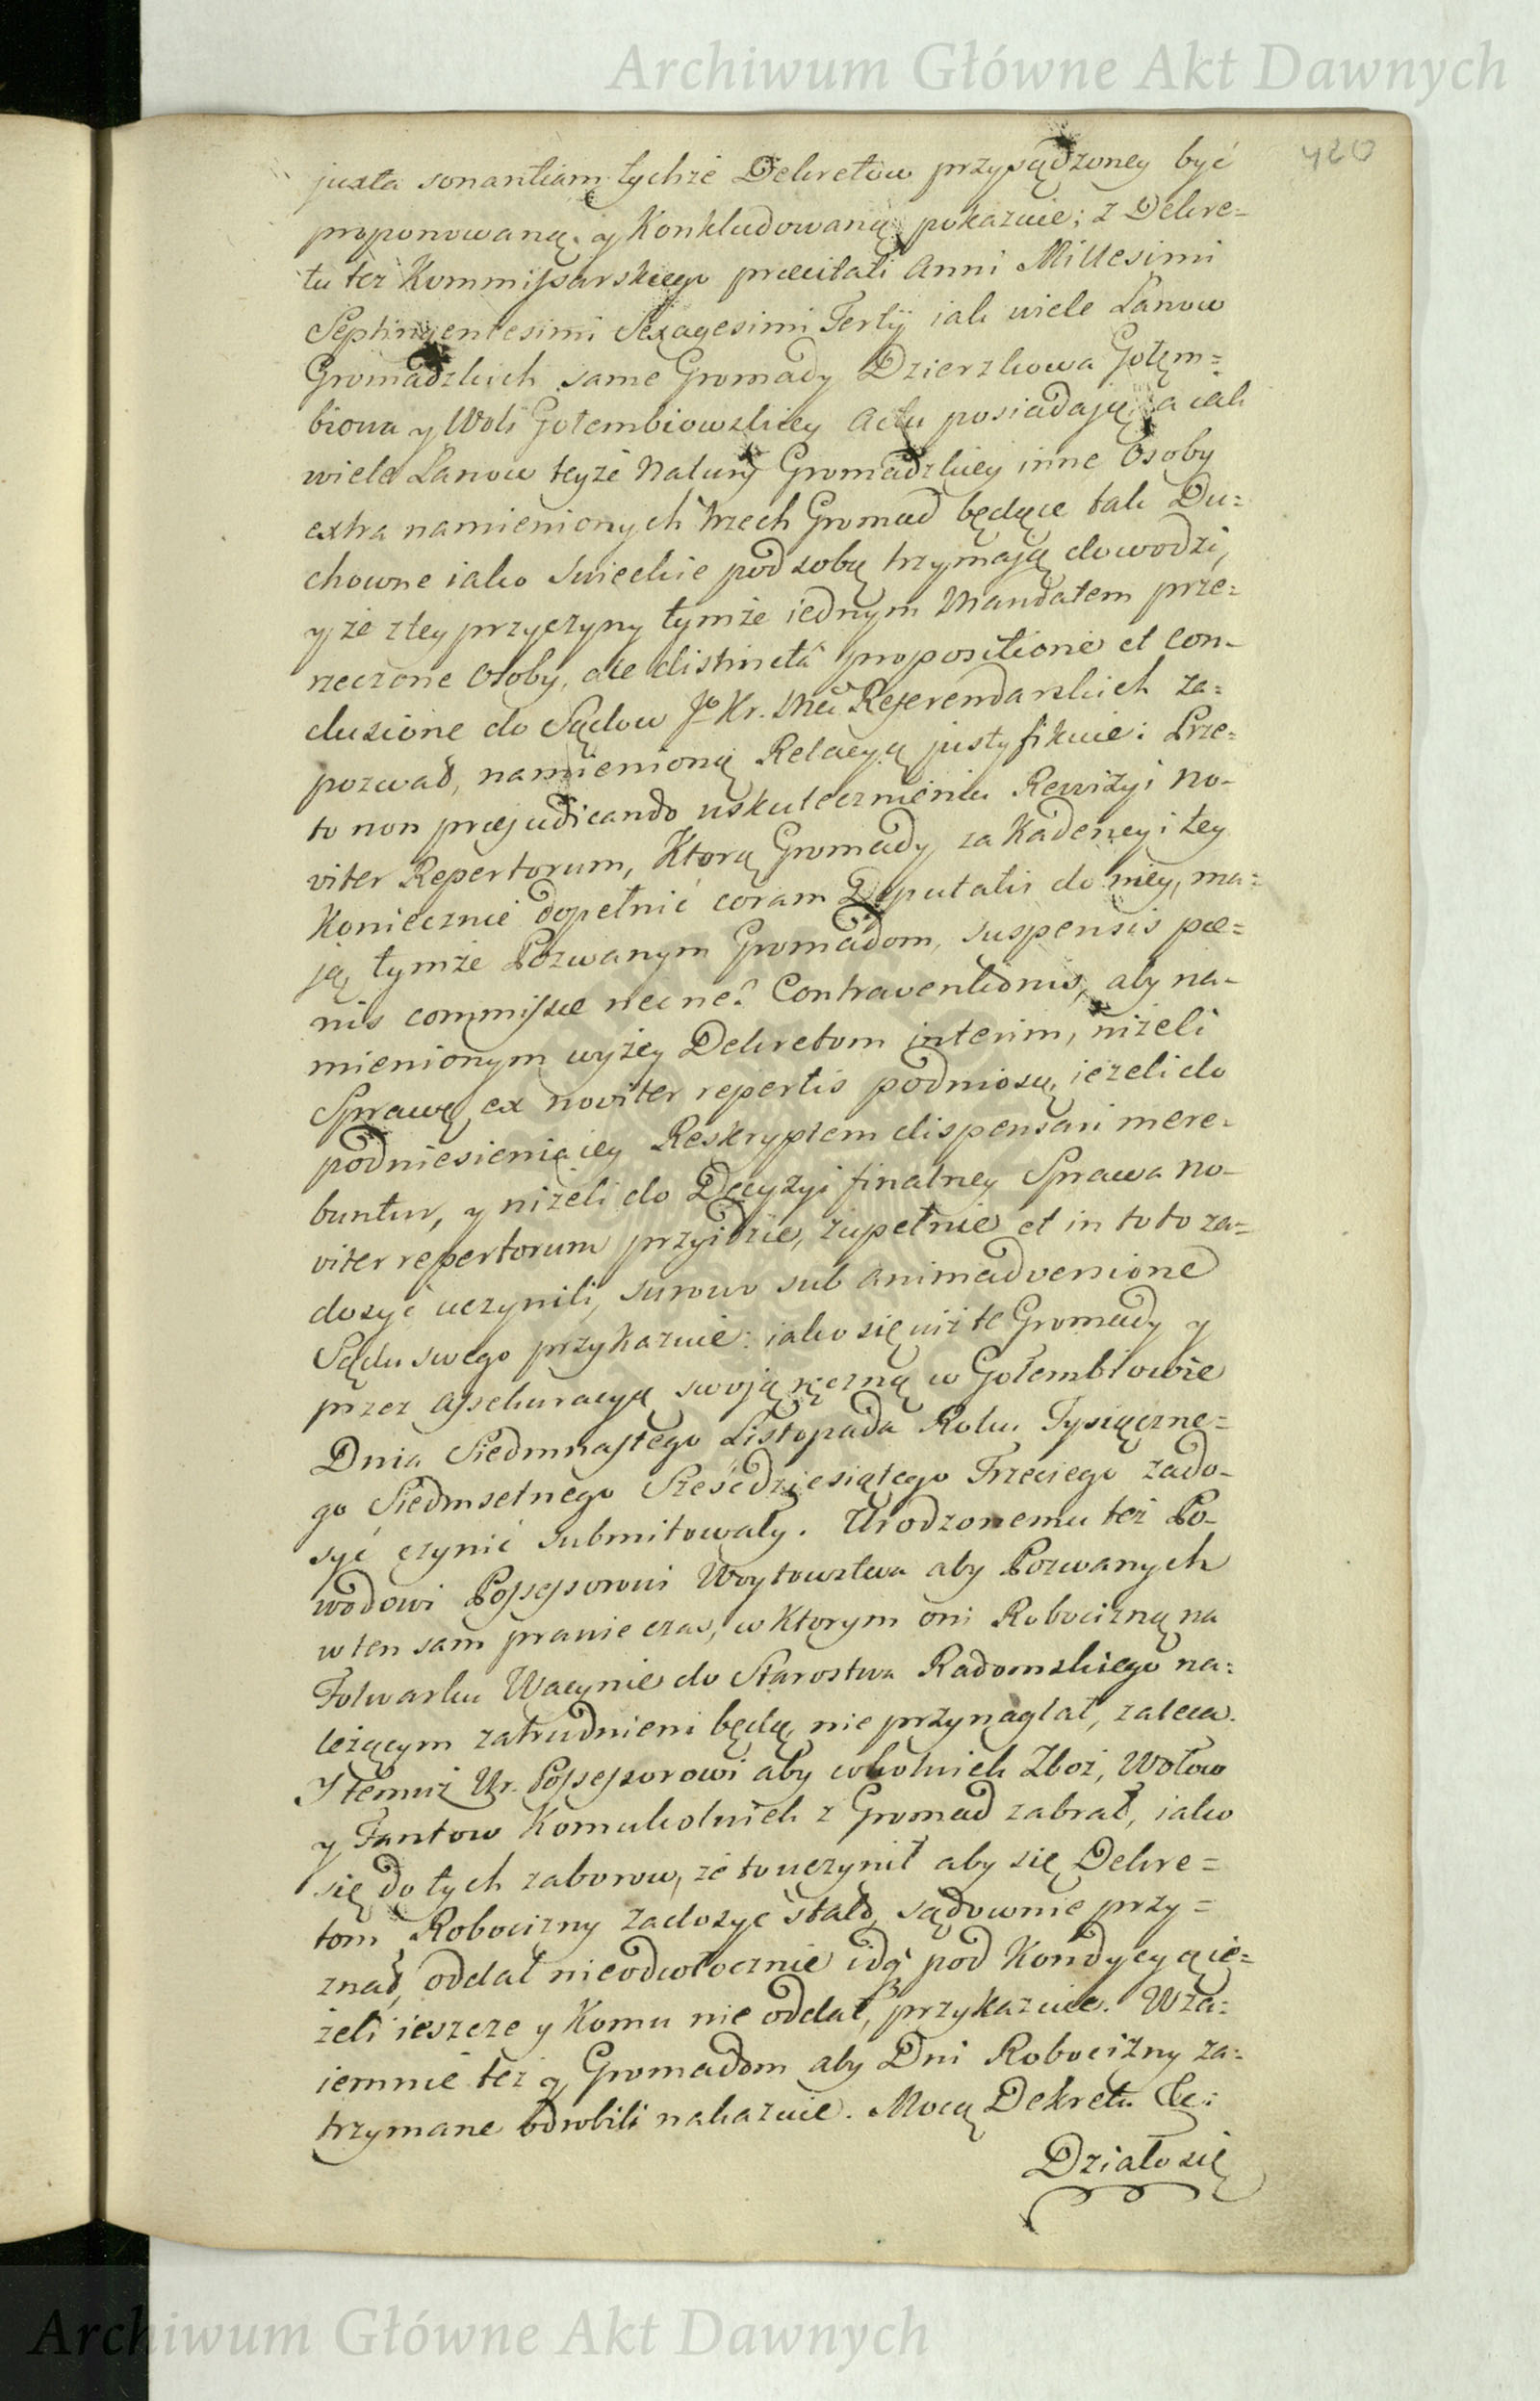 Archiwum Główne Akt Dawnych
420
juxta sonantiam tychże Dekretow przysądzoney być
proponowaną y Konkludowaną pokazuie; z Dekre=
tu też Kommissarskiego præcitati Anni Millesimi
Septingentesimi Sexagesimi Tertÿ iak wiele Łanow
Gromadzkich same Gromady Dzierzkowa Gołęm=
biowa y Woli Gołembiowskiey Actu posiadaią, a iak
wiele Łanow teyże Natury Gromadzkiey inne Osoby
extra namienionych trzech Gromad będące tak Du=
chowne iako Swieckie pod sobą trzymaią dowodzi,
y że z tey przyczyny tymże iednym Mandatem prze=
rzeczone Osoby, ale distinctâ propositione et con-
clusione do Sądow Jo Kr. Mci Referendarskich za=
pozwał, namienioną Relacyą justyfikuie: Prze=
to non præjudicando uskutecznieniu Rewizyi no-
viter Repertorum, Ktorą Gromady za Kadencyi tey
Koniecznie dopełnić coram Deputatis do niey, ma=
ją, tymże Pozwanym Gromadom, suspensis pœ=
nis commissæ necne? Contraventionis, aby na-
mienionym wyżey Dekretom interim, niżeli
Sprawę ex noviter repertis podniosą, ieżeli do
podniesienia iey Reskryptem dispensari mere-
buntur, y niżeli do Decyzyi finalney Sprawa no-
viter repertorum przyidzie, zupełnie et in toto za=
dosyć uczynili, surowo sub animadversione
Sądu swego przykazuie: iako się iuż te Gromady y
przez Assekuracyą swoją ręczną w Gołembiowie
Dnia Siedmnastego Listopada Roku Tysiączne=
go Siedmsetnego Sześćdziesiątego Trzeciego zado-
syć czynić submitowały. Urodzonemu też Po-
wodowi Possessorowi Woytowstwa aby Pozwanych
w ten sam prawie czas, w Ktorym oni Robocizną na
Folwarku Wacynie do Starostwa Radomskiego na=
leżącym zatrudnieni będą, nie przynaglał, zaleca.
Y temuż Ur. Possessorowi aby cokolwiek Zboż, Wołow
y Fantow Komukolwiek z Gromad zabrał, iako
się do tych zaborow, że to uczynił aby się Dekre=
tom Robocizny zadosyć stało, sądownie przy=
znał, oddał nieodwłocznie idq3 pod Kondycyą ie=
żeli ieszcze y Komu nie oddał, przykazuie. Wza=
iemnie też y Gromadom aby Dni Robocizny za=
trzymane odrobili nakazuie. Mocą Dekretu &c:
Działo się
Archiwum Główne Akt Dawnych